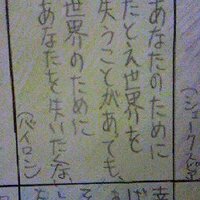 (シェークスピア)
あなたのために
たとえ世界を
失うことがあても、
世界のために
あなたを失いたくな
(バイロン)